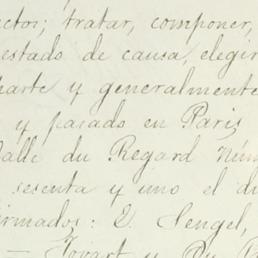 ctos; tratar, componer,
estado de causa, elegir
parte y generalmente
y pasado en Paris
Calle du Regard Núm
sesenta y uno el di
irmados: E. Sengel,
— Tovart y Du